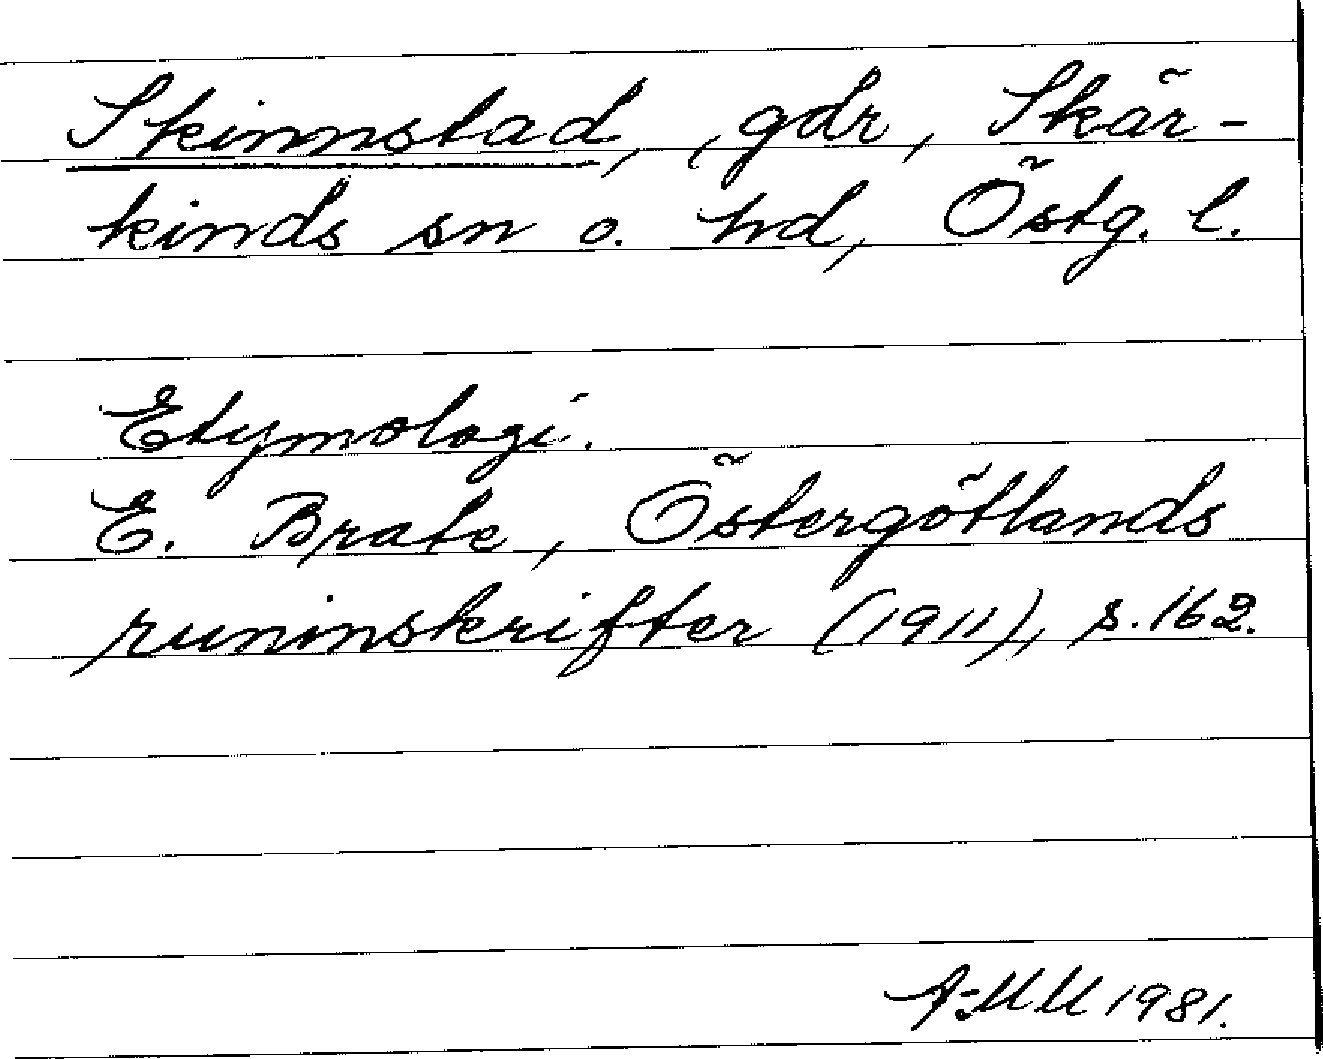 Skinnstad, gdr, Skär-
kinds sn o. hd, Östg. l.
Etymologi.
E. Brate, Östergötlands
runinskrifter (1911), s. 162.
A-MM 1981.